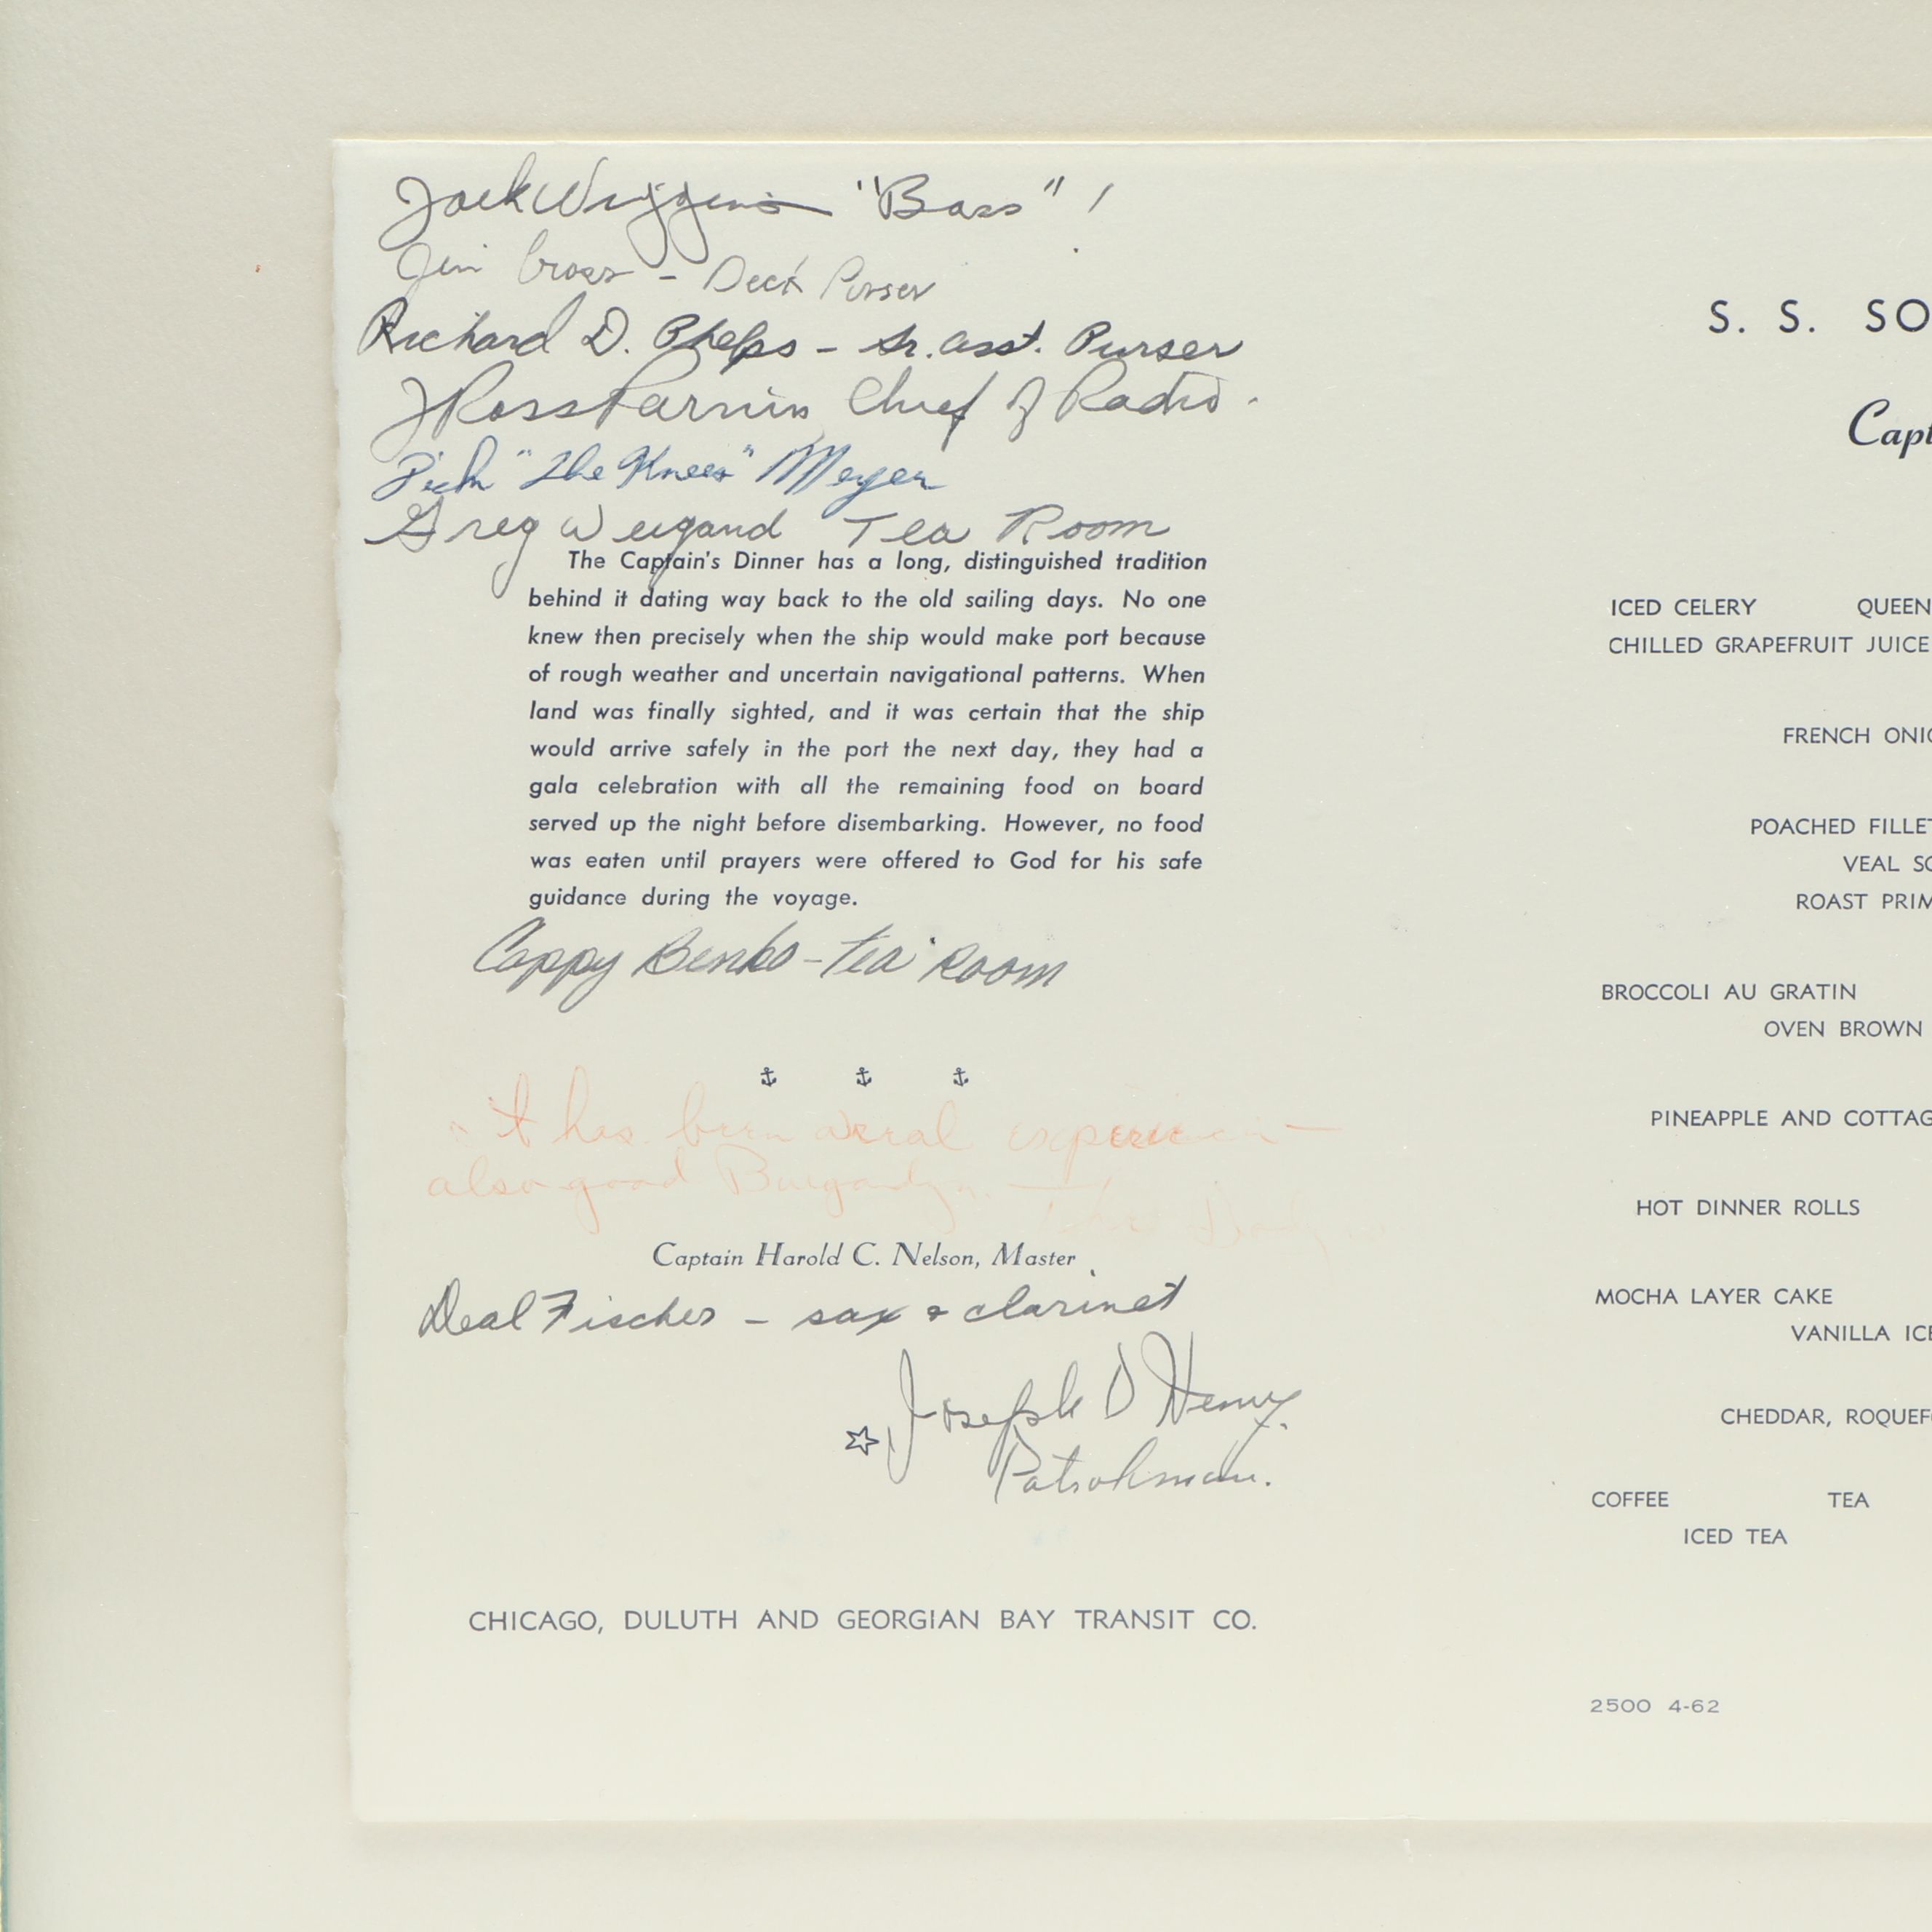 Jack Wiggins "Bass" !
Jim Cross - Deck Purser
Richard D. Phelps - Sr. Asst. Purser
J Ross Parnin Chief of Radio.
"The Knees" Meyer
Greg Weigand Tea Room
The Captain's Dinner has a long, distinguished tradition
behind it dating way back to the old sailing days. No one
knew then precisely when the ship would make port because
of rough weather and uncertain navigational patterns. When
land was finally sighted, and it was certain that the ship
would arrive safely in the port the next day, they had a
gala celebration with all the remaining food on board
served up the night before disembarking. However, no food
was eaten until prayers were offered to God for his safe
guidance during the voyage.
Cappy Benko - Tea Room
it has been a real experience -
also good
Captain Harold C. Nelson, Master
Deal Fischer - sax & clarinet
Joseph D Henry.
Patrolman.
CHICAGO, DULUTH AND GEORGIAN BAY TRANSIT CO.
S. S. SO
Capt
ICED CELERY QUEEN
CHILLED GRAPEFRUIT JUICE
FRENCH ONIO
POACHED FILLET
VEAL SC
ROAST PRIM
BROCCOLI AU GRATIN
OVEN BROWN
PINEAPPLE AND COTTAG
HOT DINNER ROLLS
MOCHA LAYER CAKE
VANILLA ICE
CHEDDAR, ROQUEFO
COFFEE TEA
ICED TEA
2500 4-62